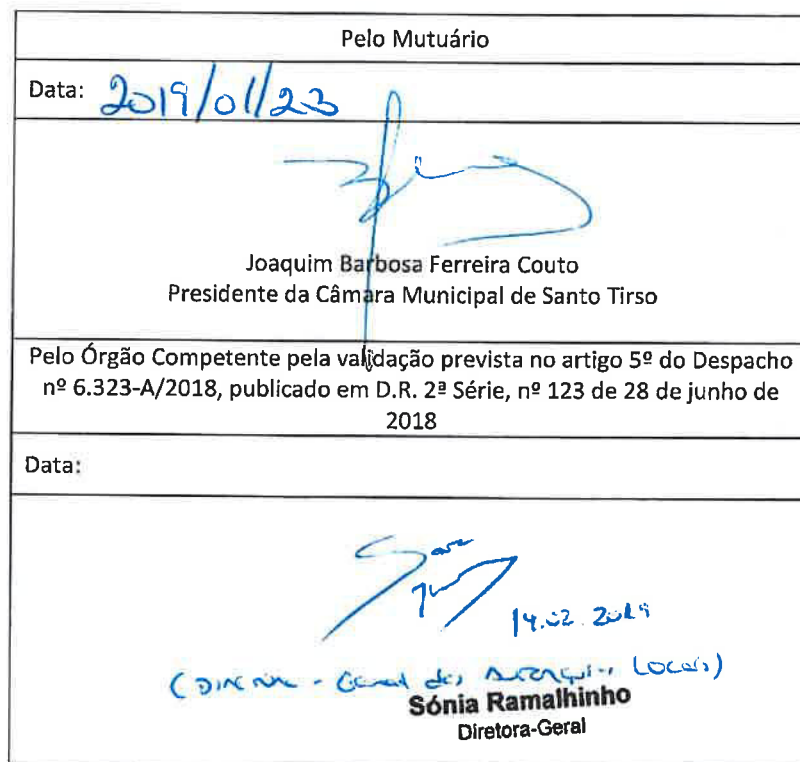 Pelo Mutuário
Data: 2019/01/23
Joaquim Barbosa Ferreira Couto
Presidente da Câmara Municipal de Santo Tirso
Pelo Órgão Competente pela validação prevista no artigo 5º do Despacho
nº 6.323-A/2018, publicado em D.R. 2ª Série, nº 123 de 28 de junho de
2018
Data:
14.02.2019
Locais)
Sónia Ramalhinho
Diretora-Geral